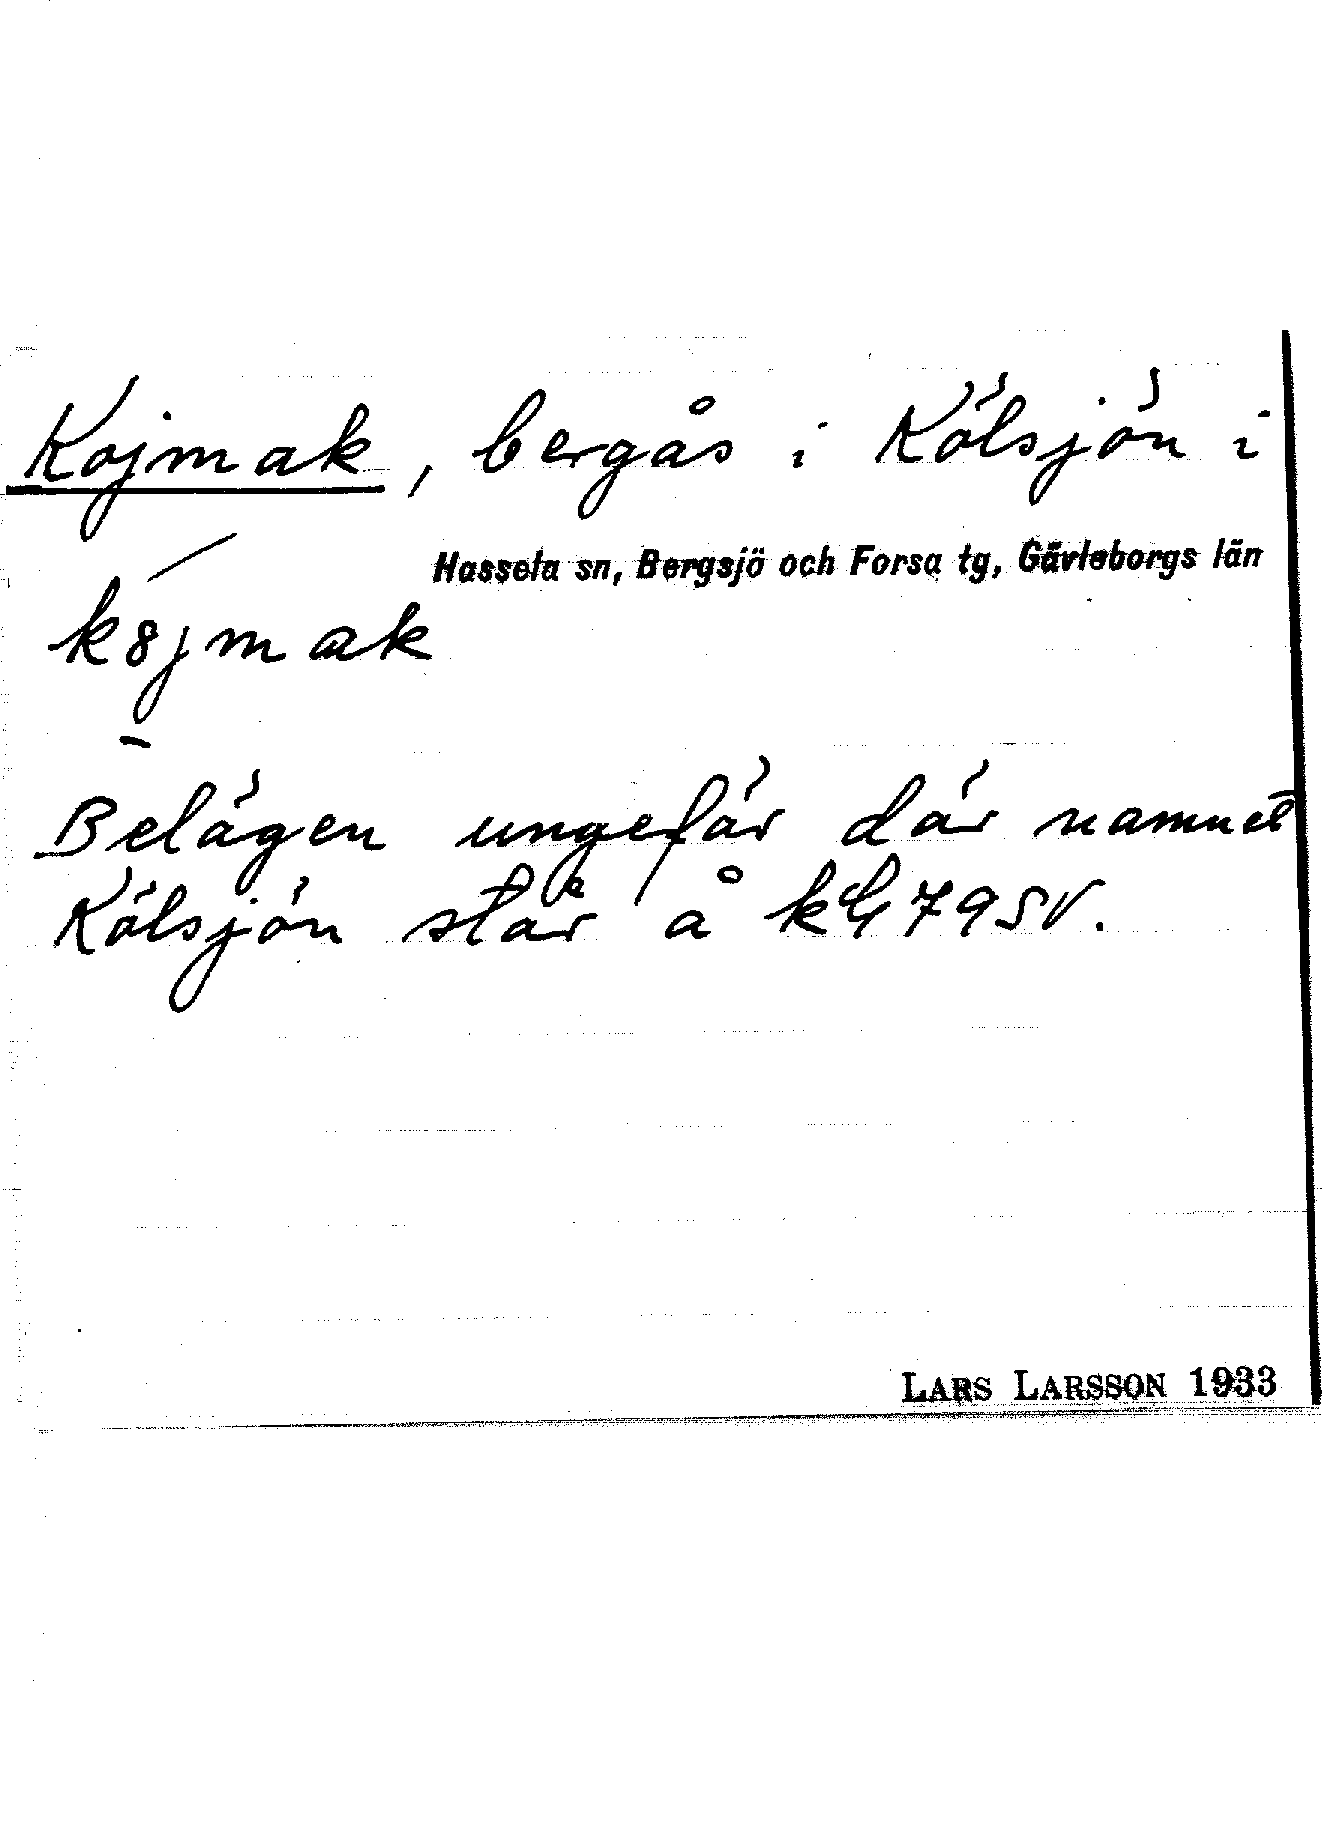 Kojmak, bergås i Kölsjön i
Hassela sn, Bergsjö och Forsa tg, Gävleborgs län
k8jmak
Belägen ungefär där namnet
Kölsjön står å kbl 79 SV.
LARS LARSSON 1933